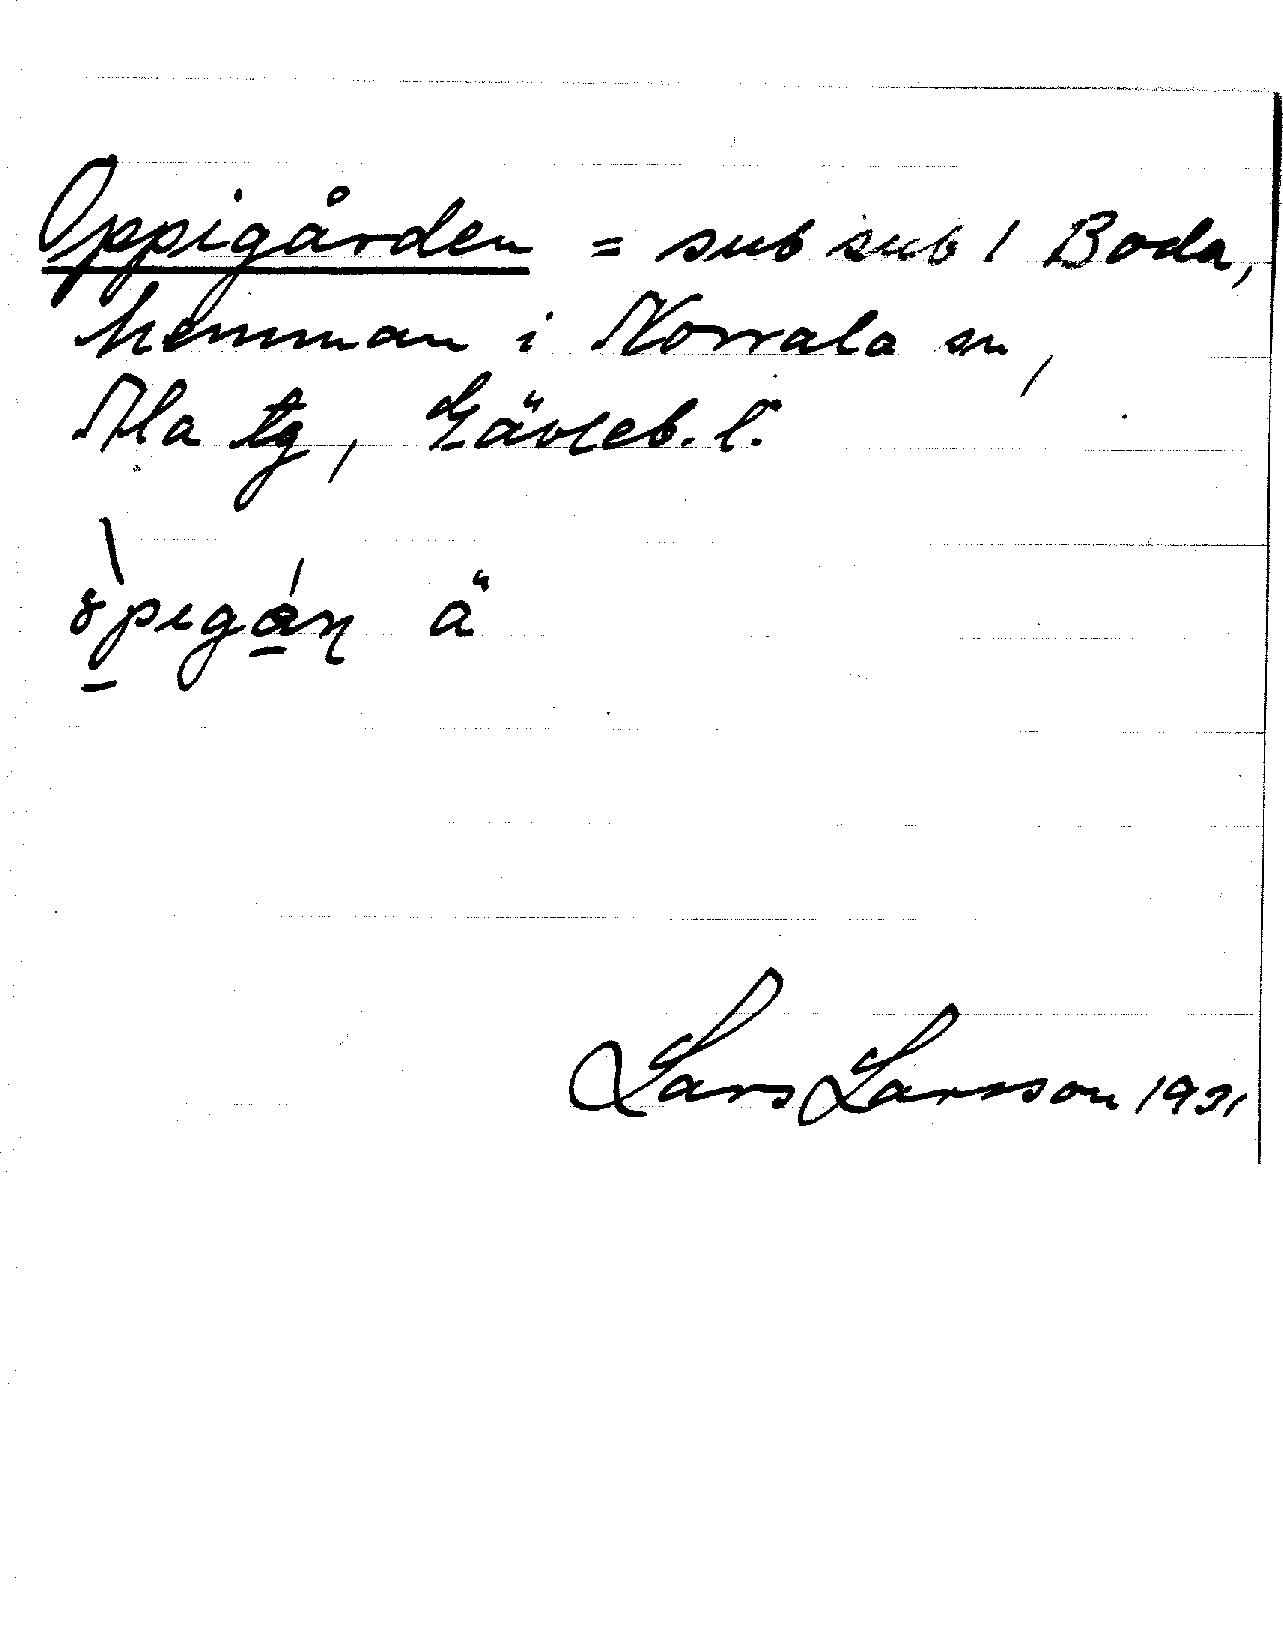 Oppigården = sub sub 1 Boda,
hemman i Norrala sn,
Ala tg, Gävleb. l.
ä
Lars Larsson 1931